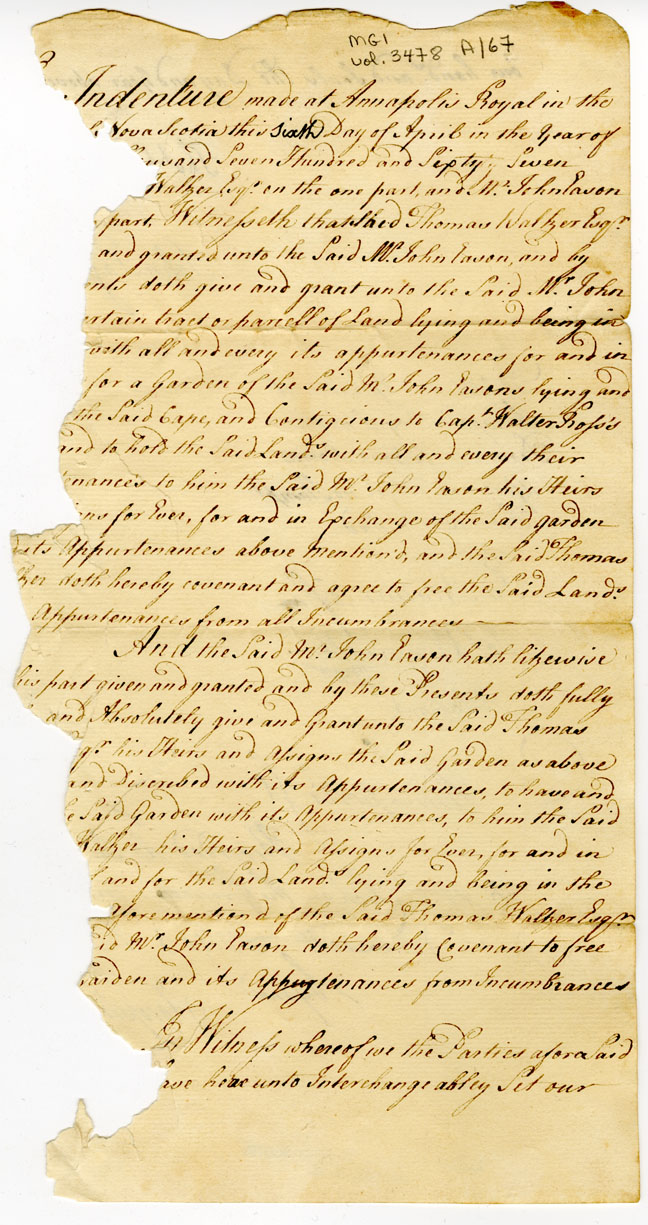 MG1
vol. 3478 A/67
Indenture made at Annapolis Royal in the
Nova Scotia this sixth Day of April in the Year of
ousand Seven Hundred and Sixty, Seven
Walker Esqr. on the one part, and Mr. John Eason
part. Witnesseth that Said Thomas Walker Esqr.
and granted unto the Said Mr. John Eason, and by
ents doth give and grant unto the Said Mr. John
ertain tract or parcell of Land lying and being in
with all and every its appurtenances for and in
for a Garden of the Said Mr. John Easons lying and
the Said Cape, and Contigecious to Capt. Walter Ross's
and to hold the Said Lands. with all and every their
tenances to him the Said Mr. John Eason his Heirs
igns for Ever, for and in Exchange of the Said garden
its Appurtenances above mention'd, and the Said Thomas
ker doth hereby covenant and agree to free the Said Lands.
Appurtenances from all Incumbrances
And the Said Mr. John Eason hath likewise
his part given and granted and by these Presents doth fully
and Absolutely give and Grant unto the Said Thomas
Esqr. his Heirs and Assigns the Said Garden as above
and Discribed with its Appurtenances, to have and
e Said Garden with its Appurtenances, to him the Said
Walker his Heirs and Assigns for Ever, for and in
and for the Said Lands. lying and being in the
Afore mention'd of the Said Thomas Walker Esqr.
id Mr. John Eason doth hereby Covenant to free
Garden and its Appurtenances from Incumbrances
In Witness whereof we the Parties afora Said
have here unto Interchangeabley Set our